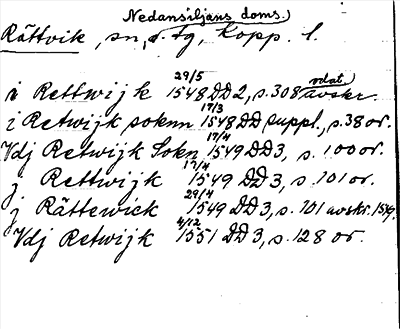 Nedansiljans doms.
Rättvik, sn, o. tg, Kopp. l.
i Rettwijk 29/5 1548 DD 2, s. 308 odat. avskr.
i Retwijk soknn 17/3 1548 DD suppl., s. 38 or.
Vdj Retwijk Sokn 17/4 1549 DD 3, s. 100 or.
j Rettwijk 17/4 1549 DD 3, s. 101 or.
j Rättewick 29/4 1549 DD 3, s. 101 avskr. 1549.
Vdj Retwijk 4/12 1551 DD 3, s. 128 or.